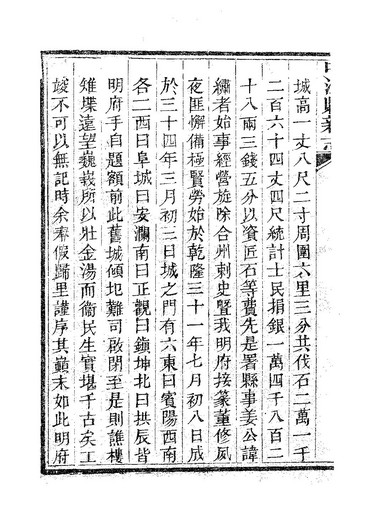 城高一丈八尺二寸周圍六里三分共伐石二萬一千
二百六十四丈四尺統計士民捐銀一萬四千八百二
十八兩三錢五分以資匠石等費先是署縣事姜公諱
繡者始事經營旋除合州刺史暨我明府接篆董修夙
夜匪懈備極賢勞始於乾隆三十一年七月初八日成
於三十四年三月初三日城之門有六東曰賓陽西南
各二西曰阜城曰安瀾南曰正觀曰鎮坤北曰拱辰皆
明府手自題額前此舊城傾圮難司啟閉至是則譙樓
雉堞遠望巍峩所以壯金湯而衞民生實堪千古矣工
竣不可以無記時余奉假歸里謹序其巔末如此明府